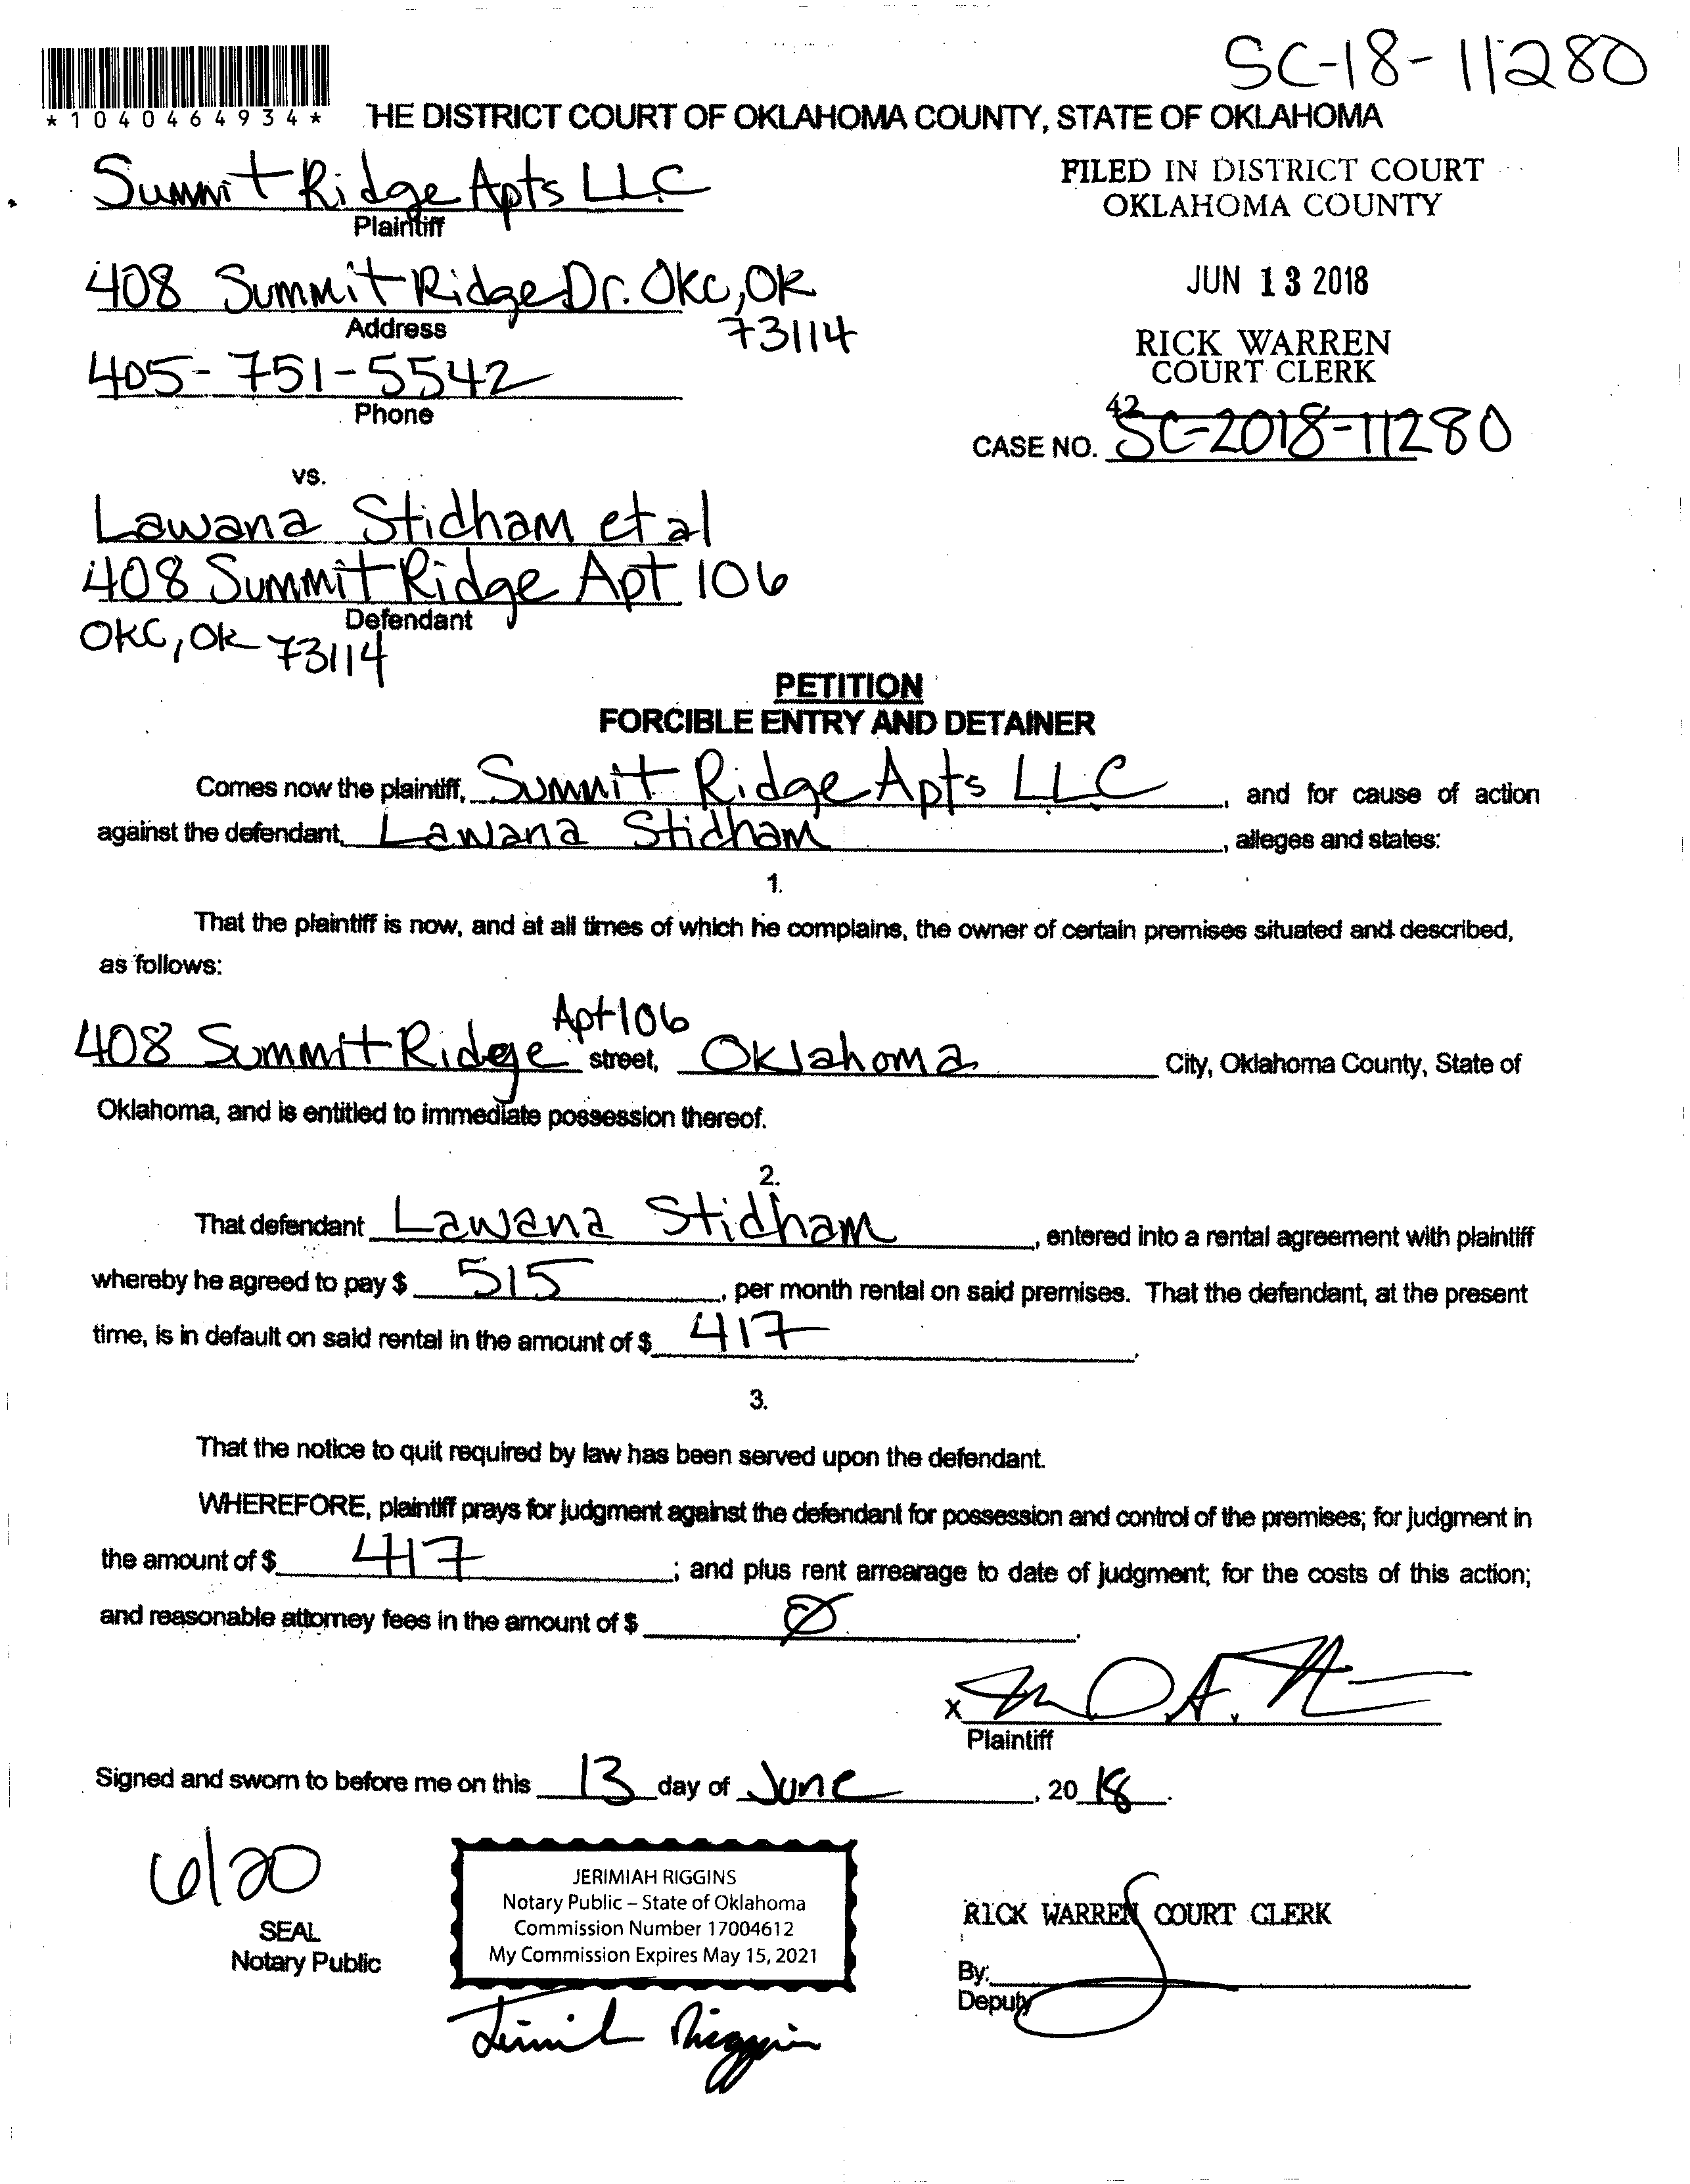 SC-18-11280
*1040464934*
HE DISTRICT COURT OF OKLAHOMA COUNTY, STATE OF OKLAHOMA
Summit Ridge Apts LLC
Plaintiff
FILED IN DISTRICT COURT
OKLAHOMA COUNTY
408 Summit Ridge Dr. OKC, OK
73114
Address
JUN 13 2018
405-751-5542
Phone
RICK WARREN
COURT CLERK
42
CASE NO. SC-2018-11280
vs.
Lawana Stidham et al
408 Summit Ridge Apt 106
Defendant
OKC, OK 73114
PETITION
FORCIBLE ENTRY AND DETAINER
Comes now the plaintiff, Summit Ridge Apts LLC, and for cause of action
against the defendant, Lawana Stidham, alleges and states:
1.
That the plaintiff is now, and at all times of which he complains, the owner of certain premises situated and described,
as follows:
408 Summit Ridge Apt 106 street, Oklahoma City, Oklahoma County, State of
Oklahoma, and is entitled to immediate possession thereof.
2.
That defendant Lawana Stidham, entered into a rental agreement with plaintiff
whereby he agreed to pay $ 515, per month rental on said premises. That the defendant, at the present
time, is in default on said rental in the amount of $ 417.
3.
That the notice to quit required by law has been served upon the defendant.
WHEREFORE, plaintiff prays for judgment against the defendant for possession and control of the premises; for judgment in
the amount of $ 417; and plus rent arrearage to date of judgment; for the costs of this action;
and reasonable attorney fees in the amount of $ Ø.
X
Plaintiff
Signed and sworn to before me on this 13 day of June, 2018.
6/20
SEAL
Notary Public
JERIMIAH RIGGINS
Notary Public – State of Oklahoma
Commission Number 17004612
My Commission Expires May 15, 2021
RICK WARREN COURT CLERK
By:
Deputy
Jerimiah Riggins